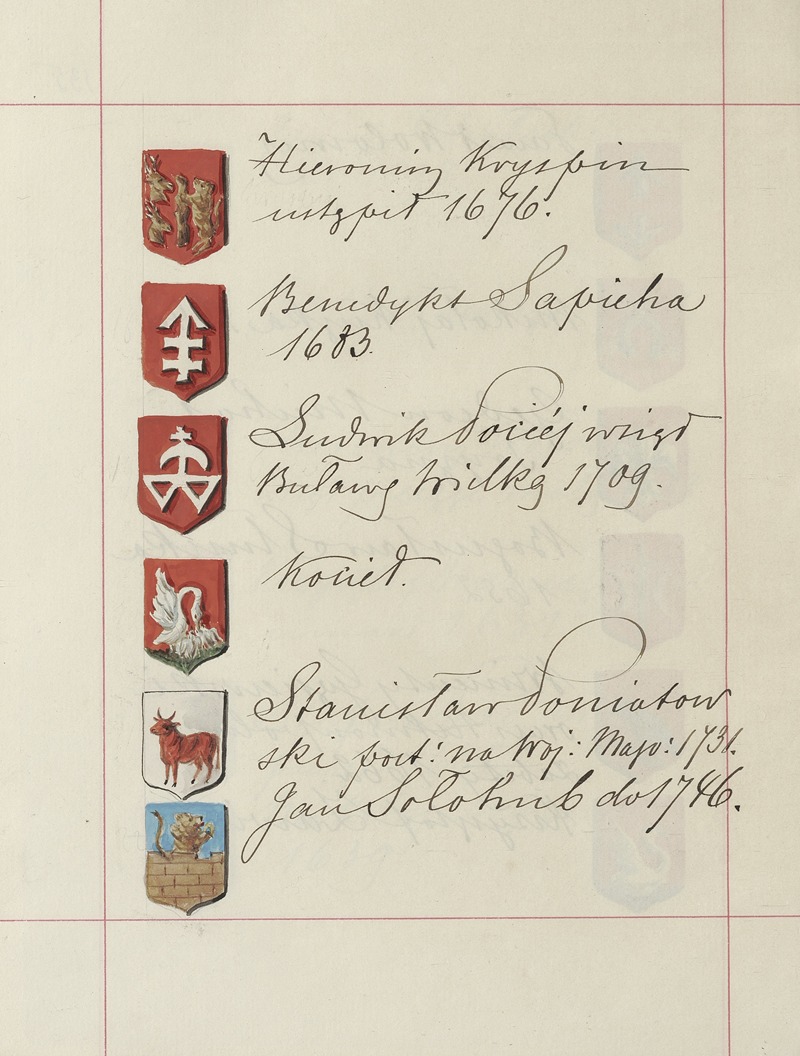 Hieronim Kryspin
ustąpił 1676.
Benedykt Sapieha
1683.
Ludwik Pociéj wziął
Buławę Wielką 1709.
Kocieł.
Stanisław Poniatow
ski post: na Woj: Mazo: 1731.
Jan Sołohub do 1746.